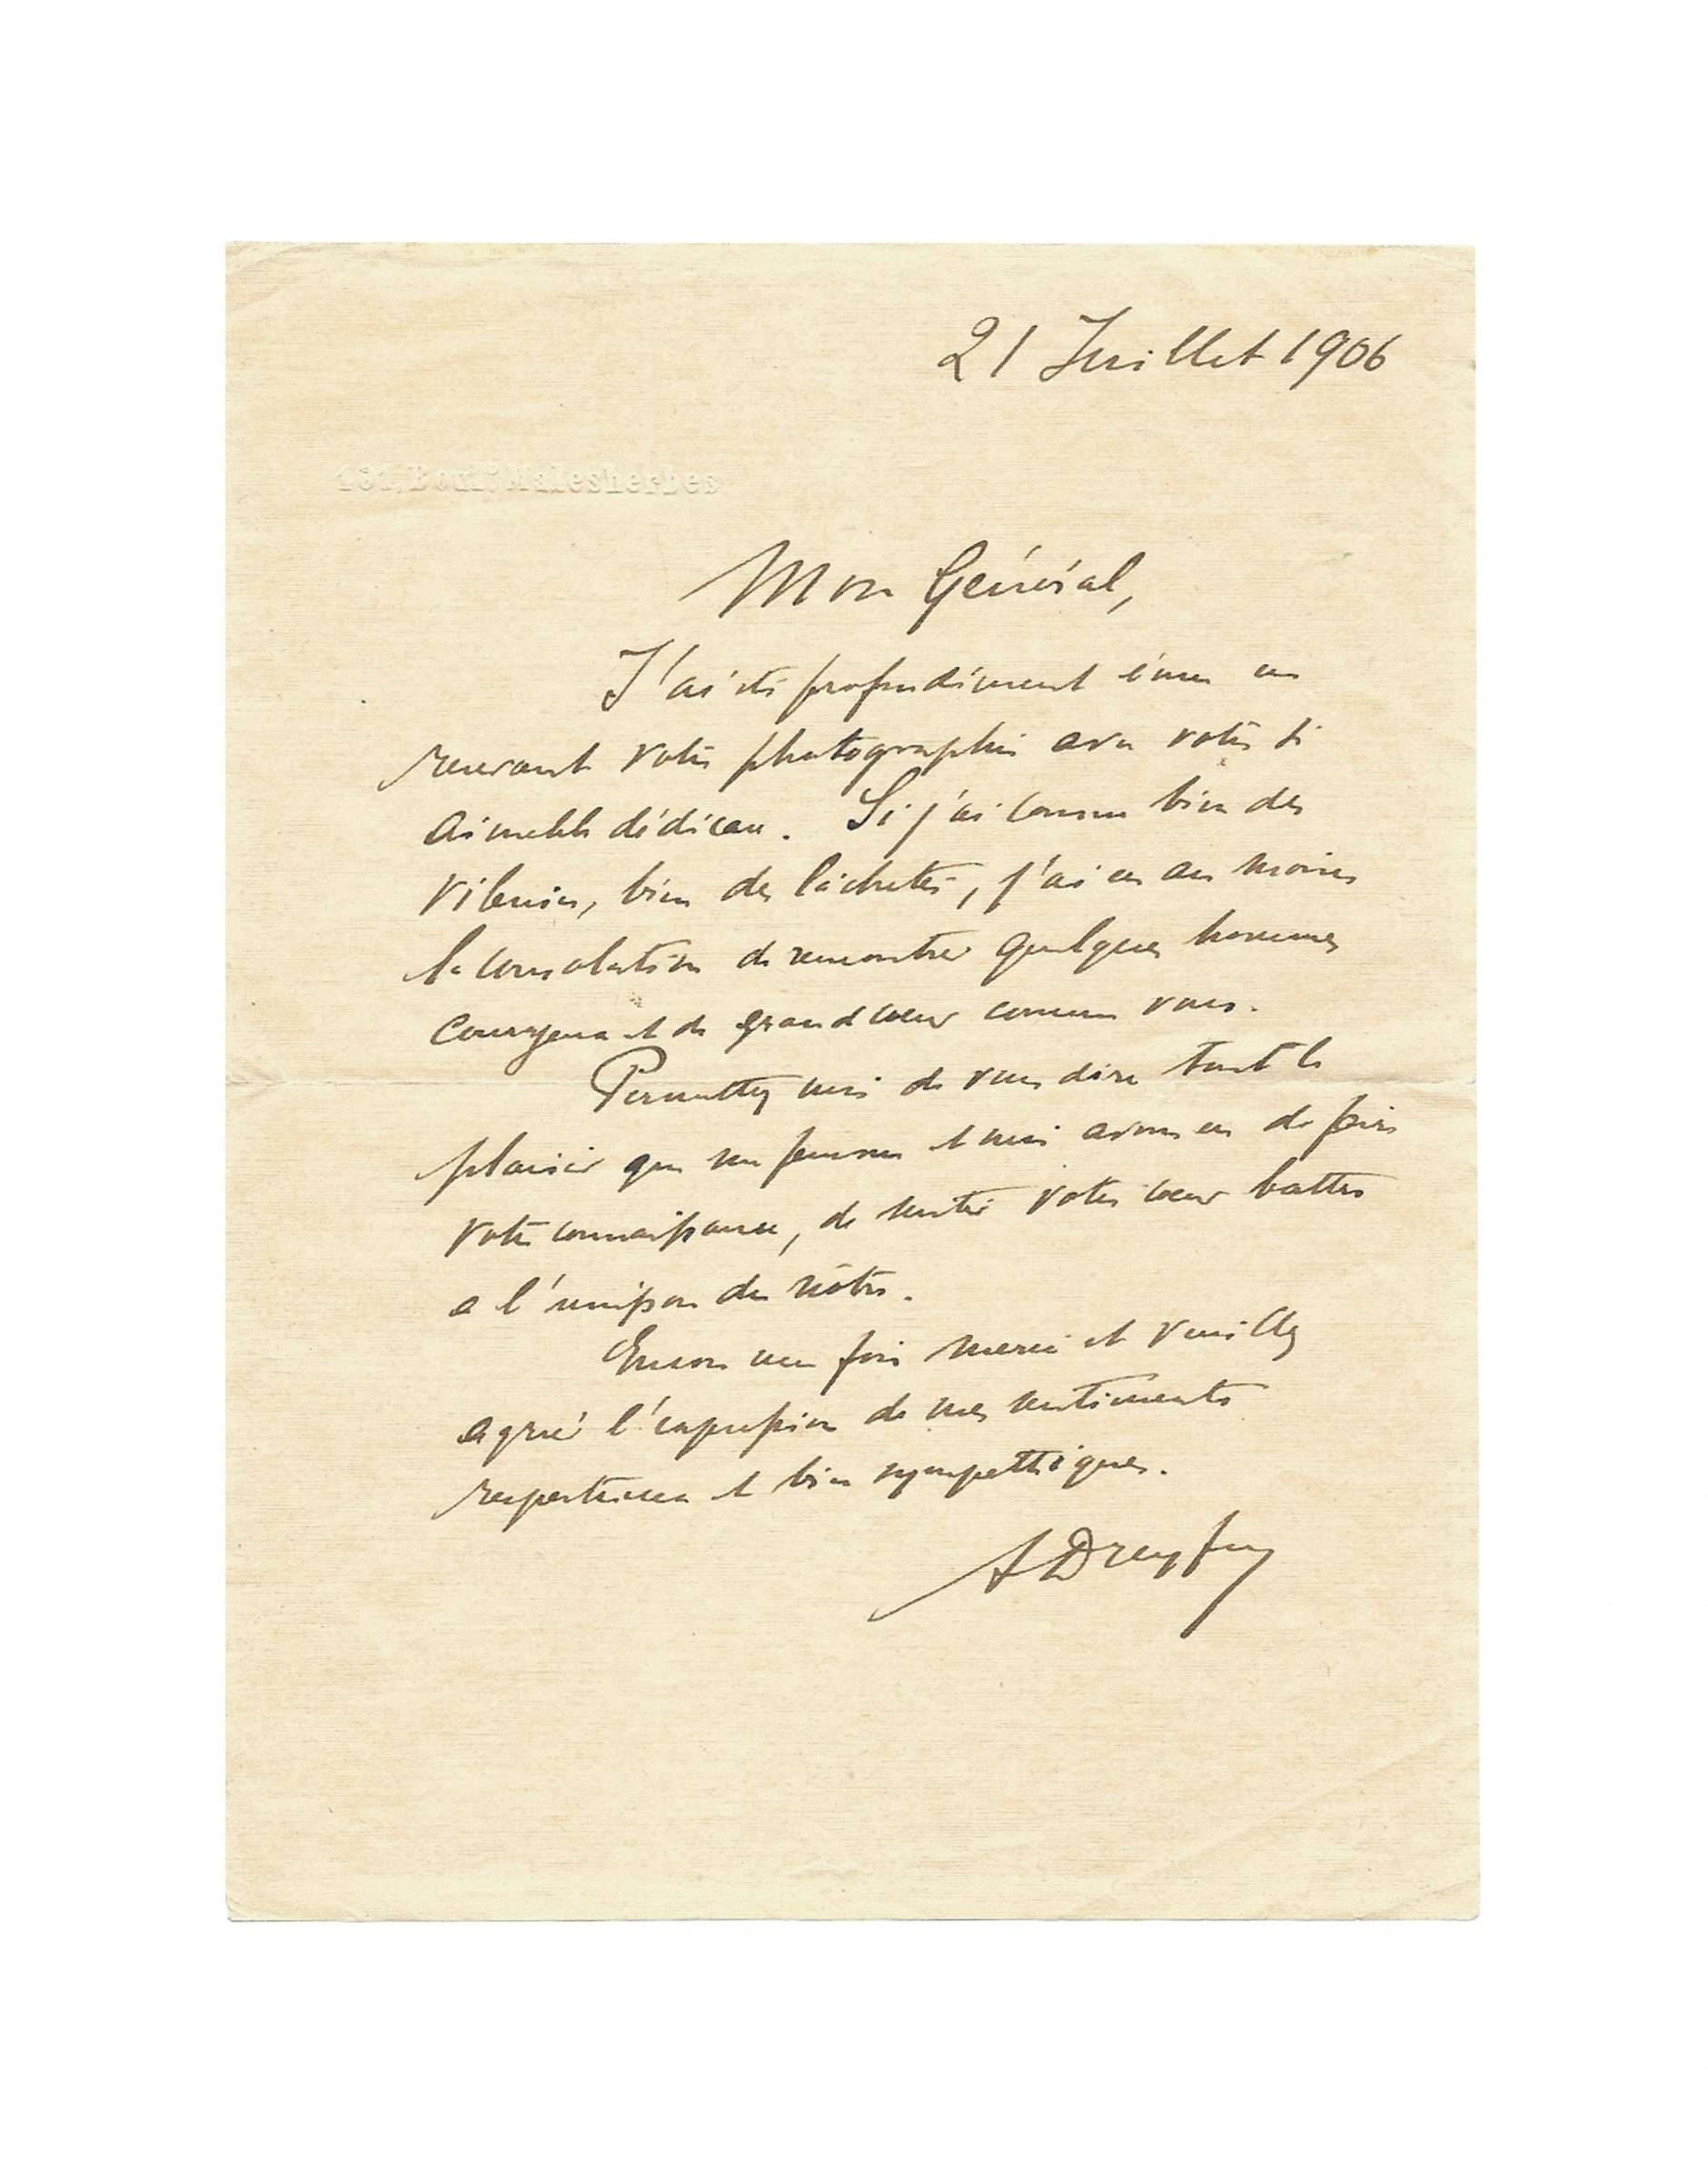 21 Juillet 1906
131, Boul.d Malesherbes
Mon Général,
J'ai été profondément ému en
recevant votre photographie avec votre si
aimable dédicace. Si j'ai connu bien des
vilenies, bien des lâchetés, j'ai eu au moins
la consolation de rencontrer quelques hommes
courageux et de grand cœur comme vous.
Permettez moi de vous dire tout le
plaisir que ma femme et moi avons eu de faire
votre connaissance, de sentir votre cœur battre
a l'unisson du nôtre.
Encore une fois merci et veuillez
agréer l'expression de mes sentiments
respectueux et bien sympathiques.
A Dreyfus